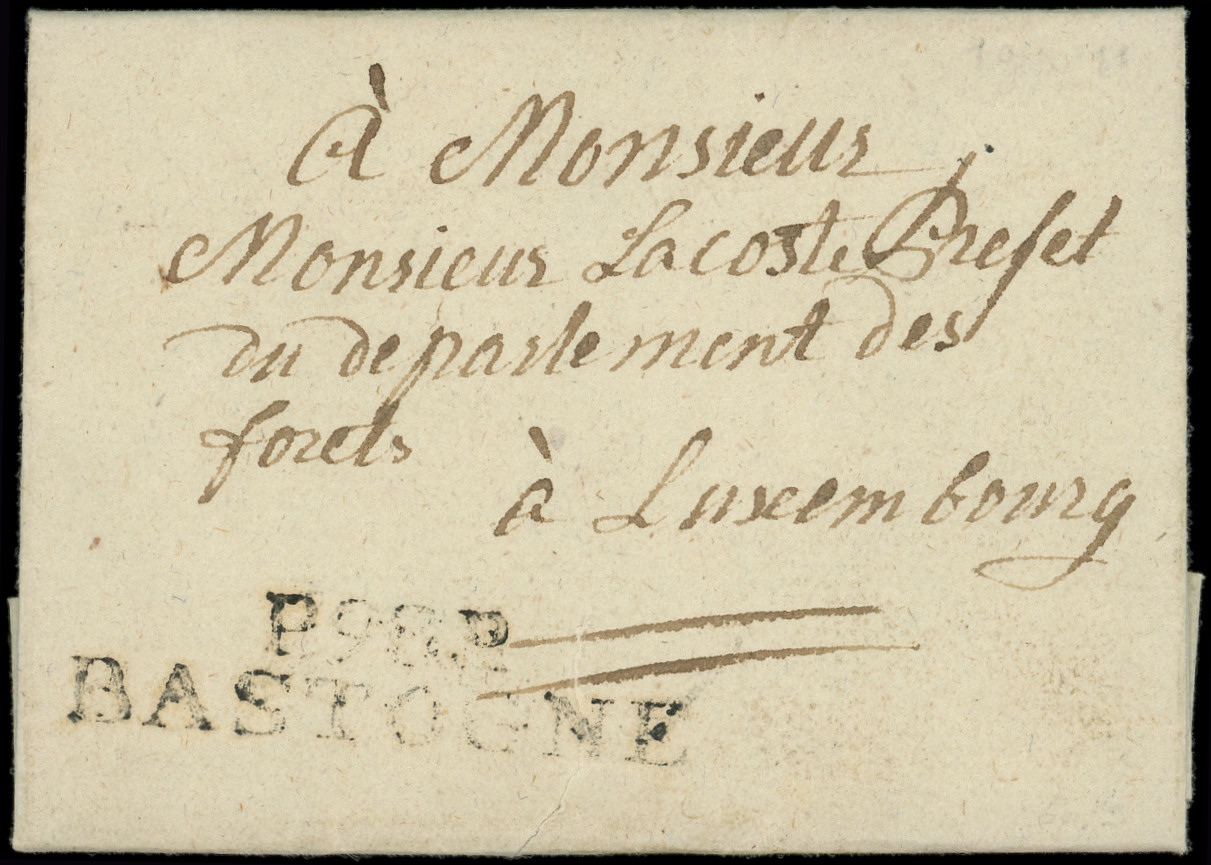 À Monsieur
Monsieur Lacoste Prefet
du departement des
forets
à Luxembourg
P98P
BASTOGNE